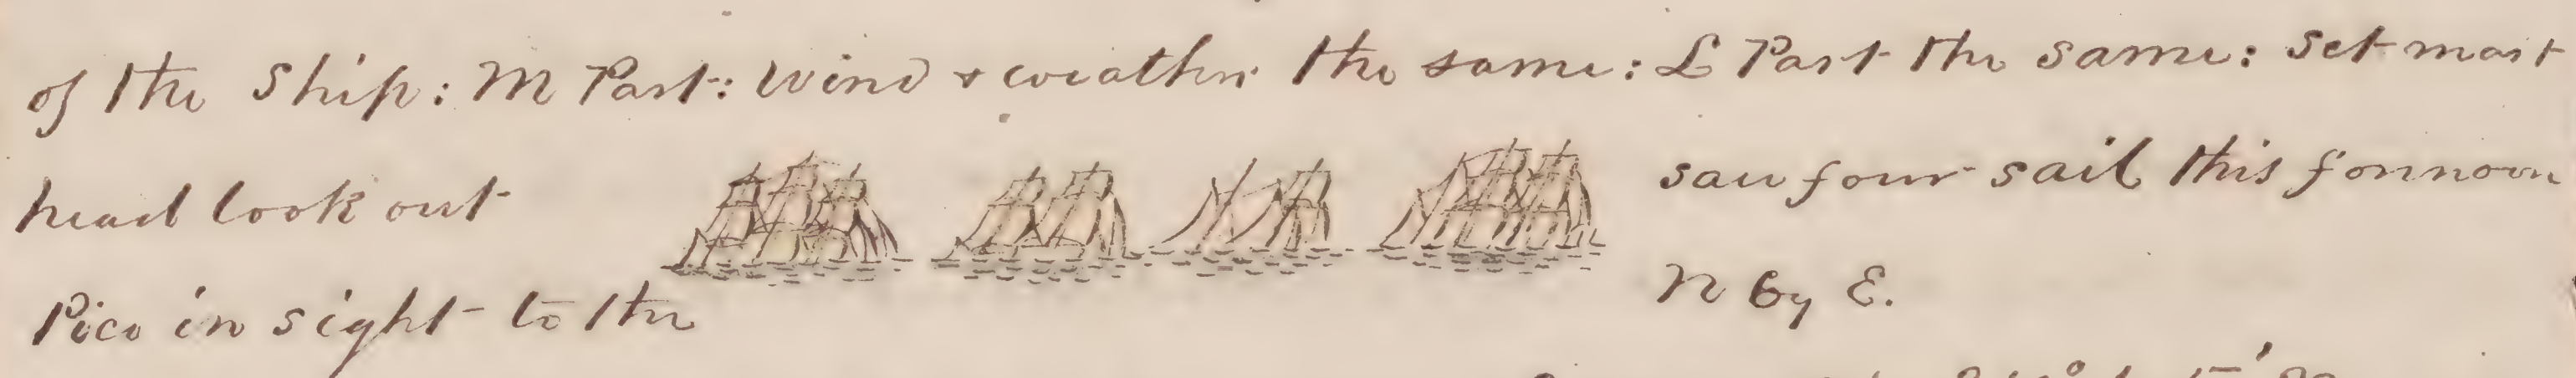 of the Ship: M Part: Wind & weather the same: L Part the same: Set mast
head look out saw four sail this forenoon
Pico in sight to the N By E.